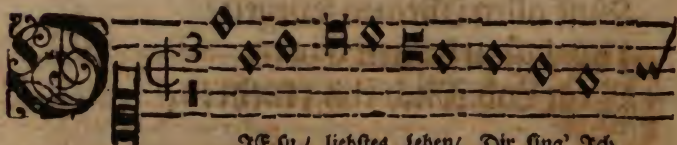 O
3
1
JESu / liebstes leben / Dir sing' Ich